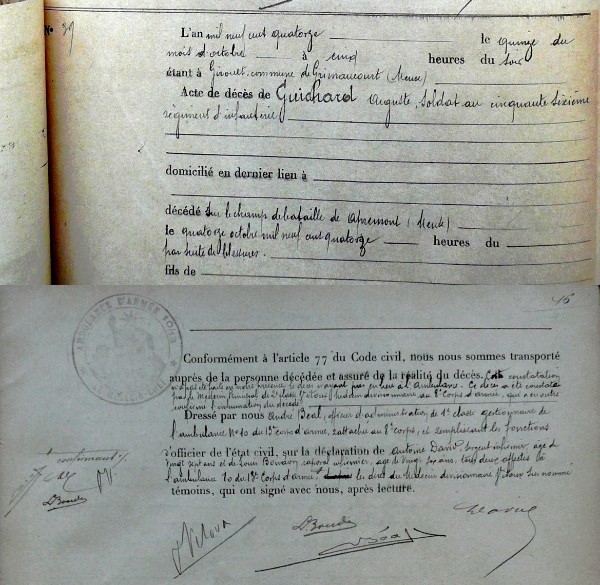 N° 39
L'an mil neuf cent quatorze le quinze du
mois d'octobre à cinq heures du soir
étant à Gironet, commune de Grimaucourt (Meuse)
Acte de décès de Guichard Auguste, Soldat au cinquante sixième
régiment d'infanterie
domicilié en dernier lieu à
décédé sur le champ de bataille de Apremont (Meuse)
le quatorze octobre mil neuf cent quatorze heures du
par suite de blessures.
fils de
AMBULANCE D'ARMÉE
Conformément à l'article 77 du Code civil, nous nous sommes transporté
auprès de la personne décédée et assuré de la réalité du décès. Cette constatation
n'a pas été faite en notre présence le décès n'ayant pas eu lieu à l'ambulance. Ce décès a été constaté
par le Médecin Principal de 2e classe Vitoux Médecin divisionnaire au 8e Corps d'armée, qui a en outre
confirmé l'inhumation du décédé
Dressé par nous André Béal, officier d'administration de 1e classe gestionnaire de
l'ambulance N° 10 du 13e corps d'armée, rattachée au 8e corps, et remplissant les fonctions
d'officier de l'état civil, sur la déclaration de Antoine David, Sergent infirmier, âgé de
vingt sept ans et de Louis caporal infirmier, âgé de vingt six ans, tous deux affectés à
l'ambulance 10 du 13e Corps d'armée, et le dire du Médecin divisionnaire Vitoux sus nommé
témoins, qui ont signé avec nous, après lecture.
Béal
David